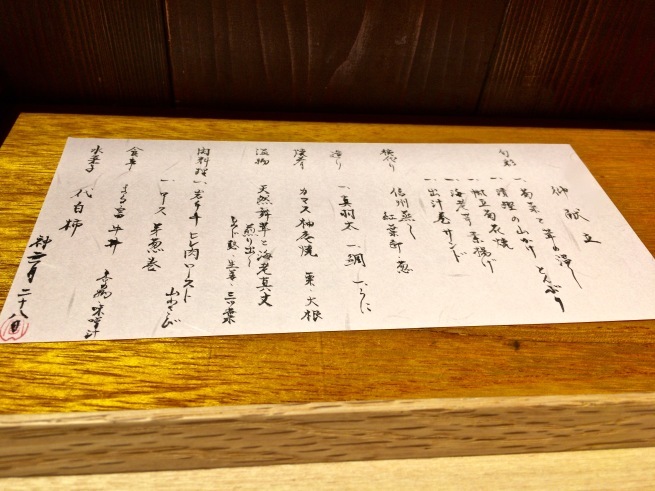 御献立
旬彩
一、菊菜と茸の浸し
一、清鯉の山かけ とんぶり
一、帆立菊衣焼
一、海老芋素揚げ
一、出汁巻サンド
椀代り
信州蒸し
紅葉卸・葱
造り
一、真羽太 一、鯛 一、うに
焼肴
カマス柚庵焼 栗・大根
温物
天然舞茸と海老真丈
煎り出し
生姜・三つ葉
肉料理
一、岩手牛ヒレ肉ロースト
山わさび
一、芽葱巻
食事
まる富牛丼
赤出汁
水菓子
代白柿
神無月 二十八日